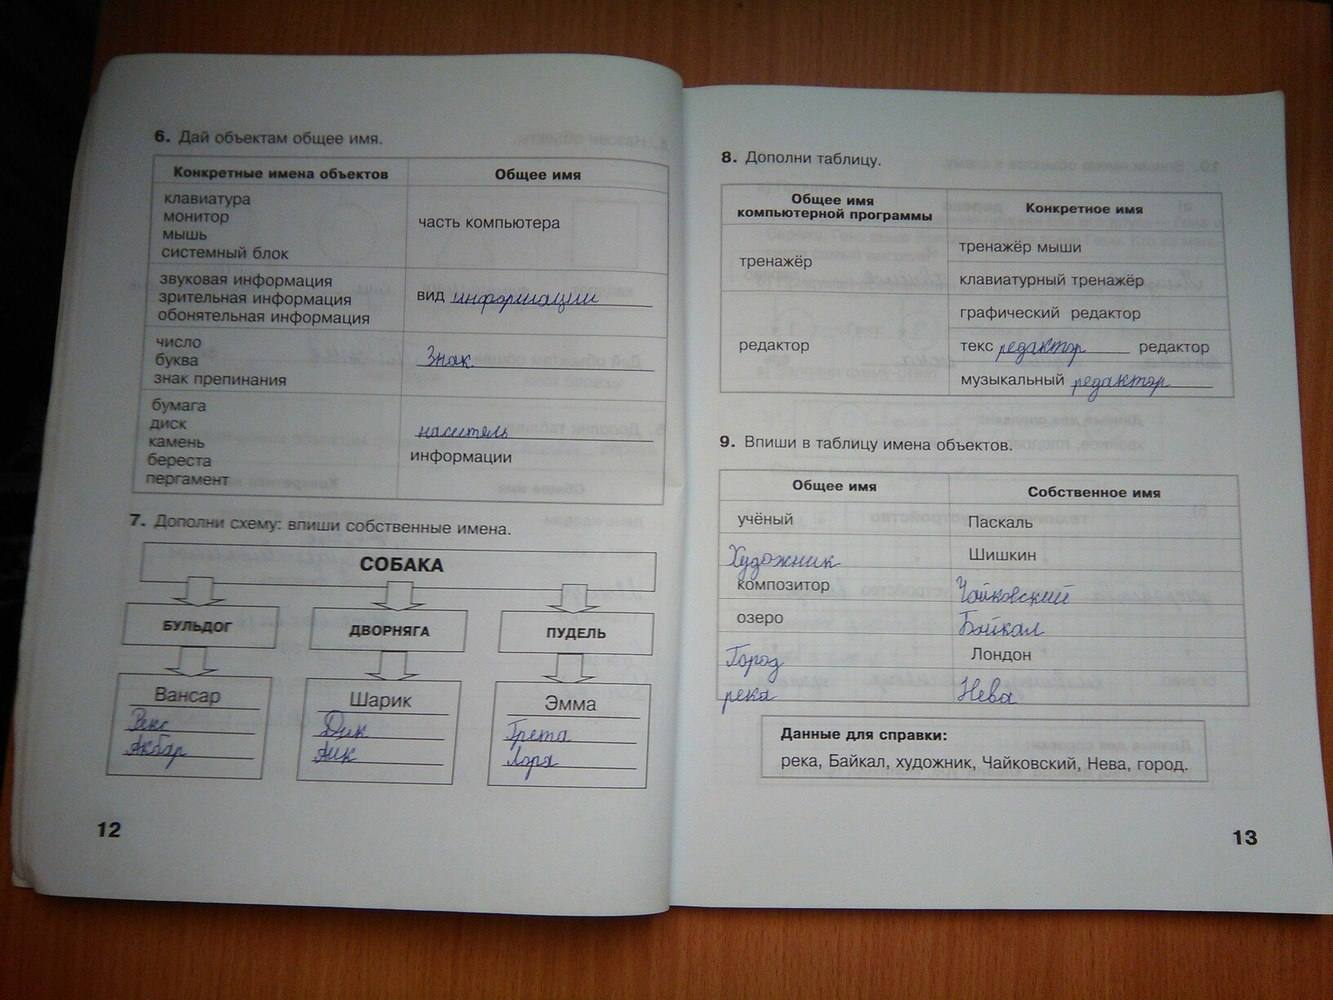 6. Дай объектам общее имя.
Конкретные имена объектов Общее имя
клавиатура
монитор
мышь
системный блок
часть компьютера
звуковая информация
зрительная информация
обонятельная информация
вид информации
число
буква
знак препинания
Знак
бумага
диск
камень
береста
пергамент
наситель
информации
7. Дополни схему: впиши собственные имена.
СОБАКА
БУЛЬДОГ ДВОРНЯГА ПУДЕЛЬ
Вансар Шарик Эмма
Рекс Дик Грета
Акбар Аик Лора
12
8. Дополни таблицу.
Общее имя
компьютерной программы
Конкретное имя
тренажёр
тренажёр мыши
клавиатурный тренажёр
редактор
графический редактор
текс редактор редактор
музыкальный редактор
9. Впиши в таблицу имена объектов.
Общее имя Собственное имя
учёный Паскаль
Художник Шишкин
композитор Чайковский
озеро Байкал
Город Лондон
река Нева
Данные для справки:
река, Байкал, художник, Чайковский, Нева, город.
13